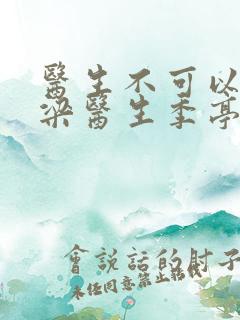 醫生不可以
梁醫生季亭
會說話的肘子
未經同意禁止轉載